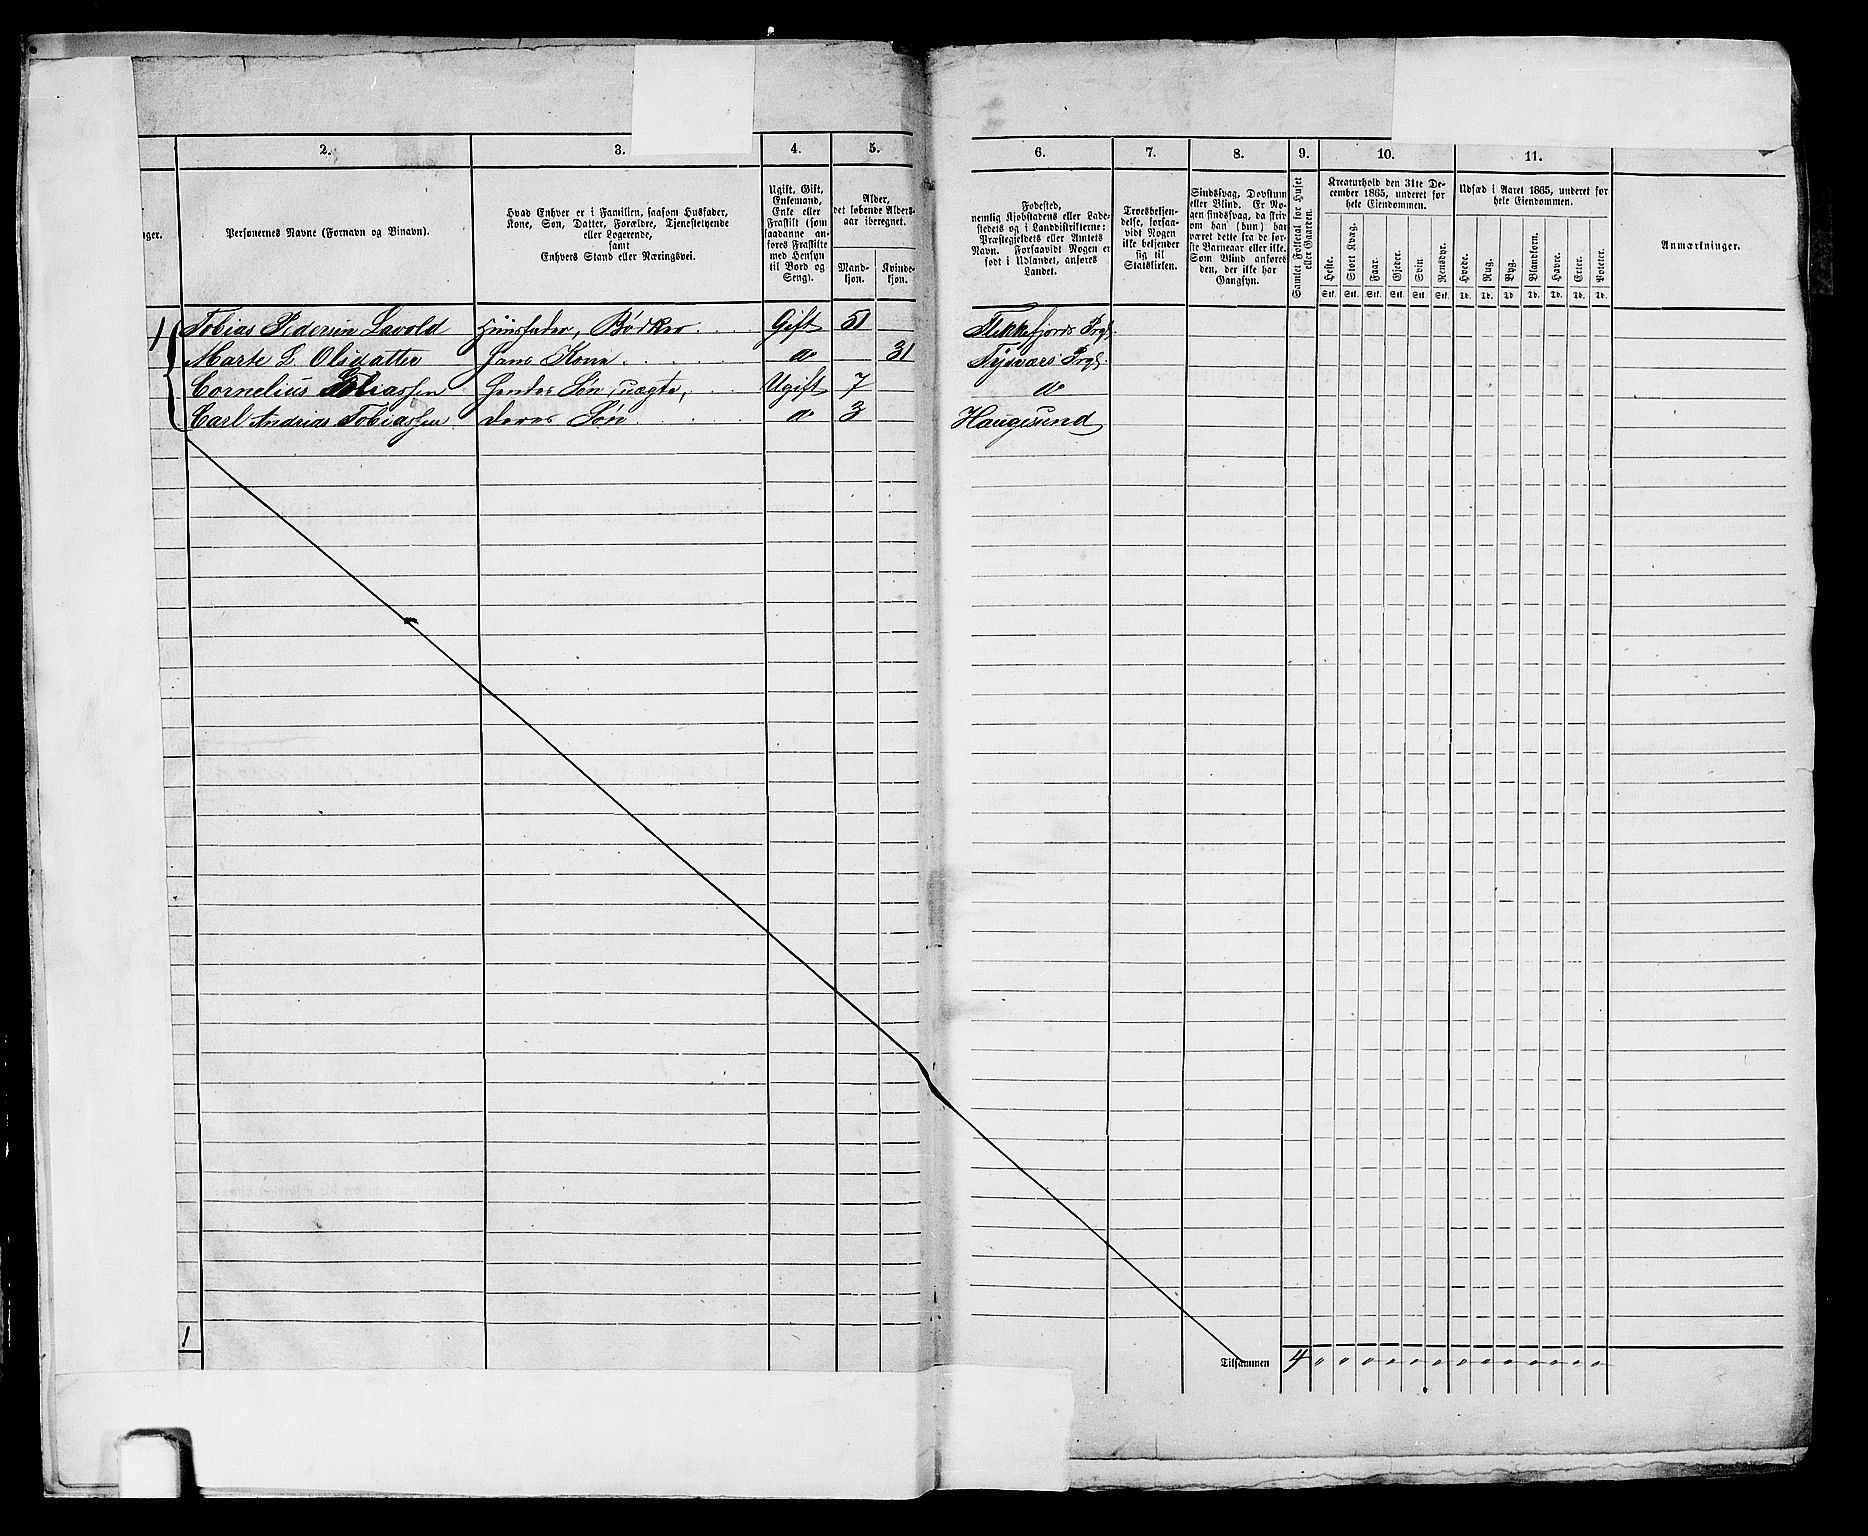 2.
3.
4.
5.
6.
7.
8.
9.
10.
11.
nger.
Personernes Navne (Fornavn og Binavn).
Hvad Enhver er i Familien, saasom Husfader,
Kone, Søn, Datter, Forældre, Tjenestetyende
eller Logerende,
samt
Enhvers Stand eller Næringsvei.
Ugift, Gift,
Enkemand,
Enke eller
Fraskilt (som
saadanne an-
føres Fraskilte
med Hensyn
til Bord og
Seng).
Alder,
det løbende Alders-
aar iberegnet.
Mand-
kjøn.
Kvinde-
kjøn.
Fødested,
nemlig Kjøbstadens eller Lade-
stedets og i Landdistrikterne:
Præstegjeldets eller Amtets
Navn. Forsaavidt Nogen er
født i Udlandet, anføres
Landet.
Troesbekjen-
delse, forsaa-
vidt Nogen
ikke bekjender
sig til
Statskirken.
Sindssvag, Døvstum
eller Blind. Er No-
gen sindssvag, da skriv
om han (hun) har
været dette fra de før-
ste Barneaar eller ikke.
Som Blind anføres
den, der ikke har
Gangsyn.
Samlet Folketal for Huset
eller Gaarden.
Kreaturhold den 31te De-
cember 1865, underet for
hele Eiendommen.
Heste.
Stort Kvæg.
Faar.
Gjeder.
Svin.
Rensdyr.
Stk. Stk. Stk. Stk. Stk. Stk.
Udsæd i Aaret 1865, underet for
hele Eiendommen.
Hvede.
Rug.
Byg.
Blandkorn.
Havre.
Erter.
Poteter.
Td. Td. Td. Td. Td. Td. Td.
Anmærkninger.
1 Tobias Pedersen Lavold Huusfader, Bødker Gift 51 Flekkefjords Prgj.
Marte L. Olsdatter hans Kone do 31 Tysværs Prgj.
Cornelius Tobiassen hendes Søn, uægte, Ugift 7 do
Carl Andrias Tobiassen deres Søn do 3 Haugesund
1
Tilsammen 4 " " " " " " " " " " " " "